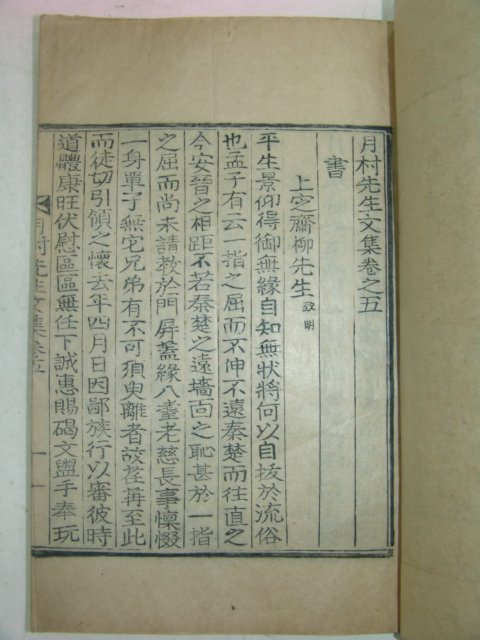 月村先生文集卷之五
書
上定齋柳先生 致明
平生景仰得御無緣自知無狀將何以自拔於流俗
也孟子有云一指之屈而不伸不遠秦楚而往直之
今安晉之相距不若秦楚之遠墻面之恥甚於一指
之屈而尚未請教於門屏蓋緣八耋老慈長事懍惙
一身單了無它兄弟有不可須臾離者故荏苒至此
而徒切引領之懷去年四月日因鄙族行以審彼時
道體康旺伏慰區區無任下誠惠賜碣文盥手奉玩
月村先生文集卷五
一